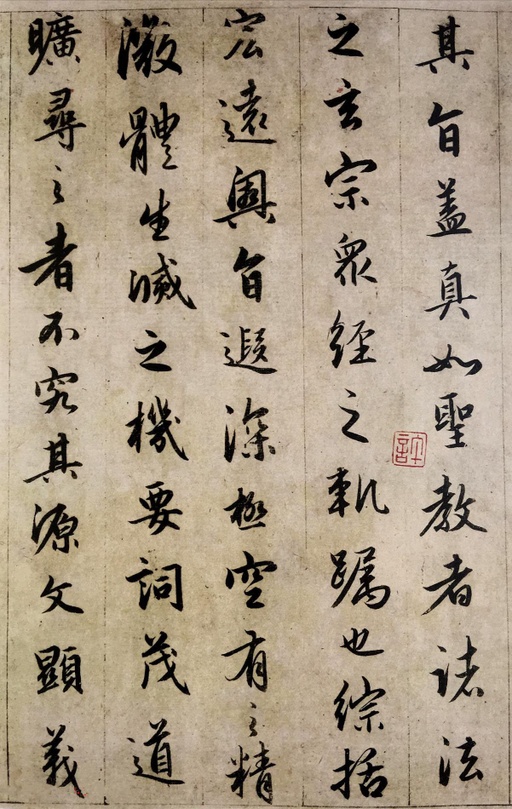 其旨蓋真如聖教者諸法
之玄宗衆經之軌躅也綜括
宏遠奧旨遐深極空有之精
微體生滅之機要詞茂道
曠尋之者不究其源文顯義
許